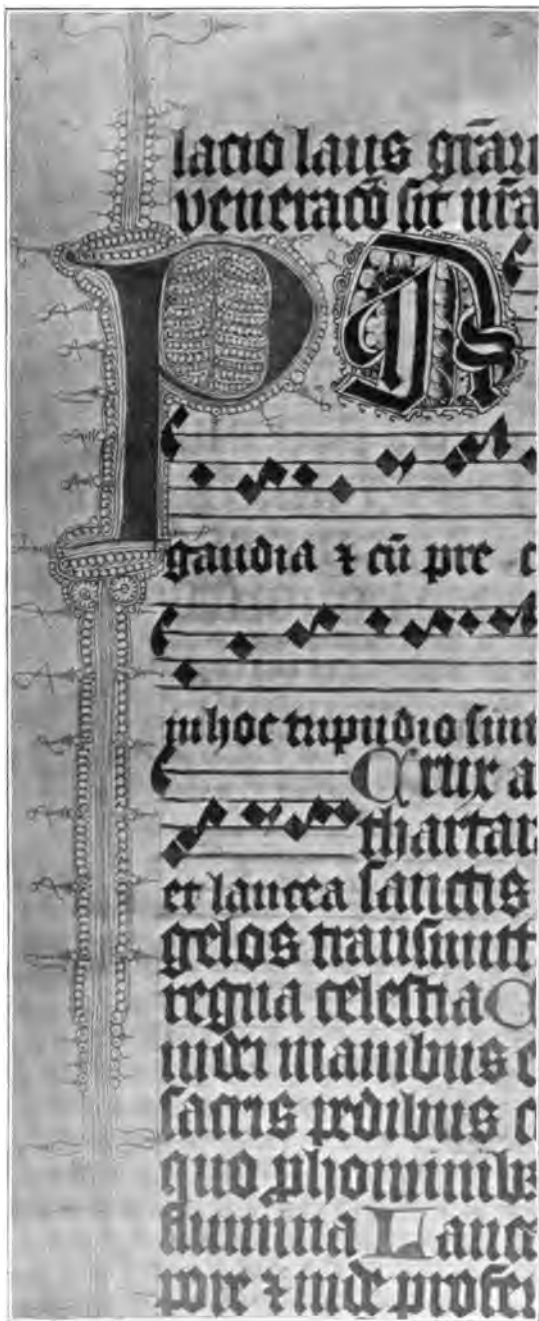 lacio laus gr̄ar
veneracō sit nr̄a
P A
gaudia ⁊ cū pre c
in hoc tripudio sint
Crux a
thartar
et lancea sanctis
gelos transmitt
regna celestia C
iudei manibus c
sacris pedibus c
quo ꝓ hominibꝫ
flumina Lance
pore ⁊ inde profer